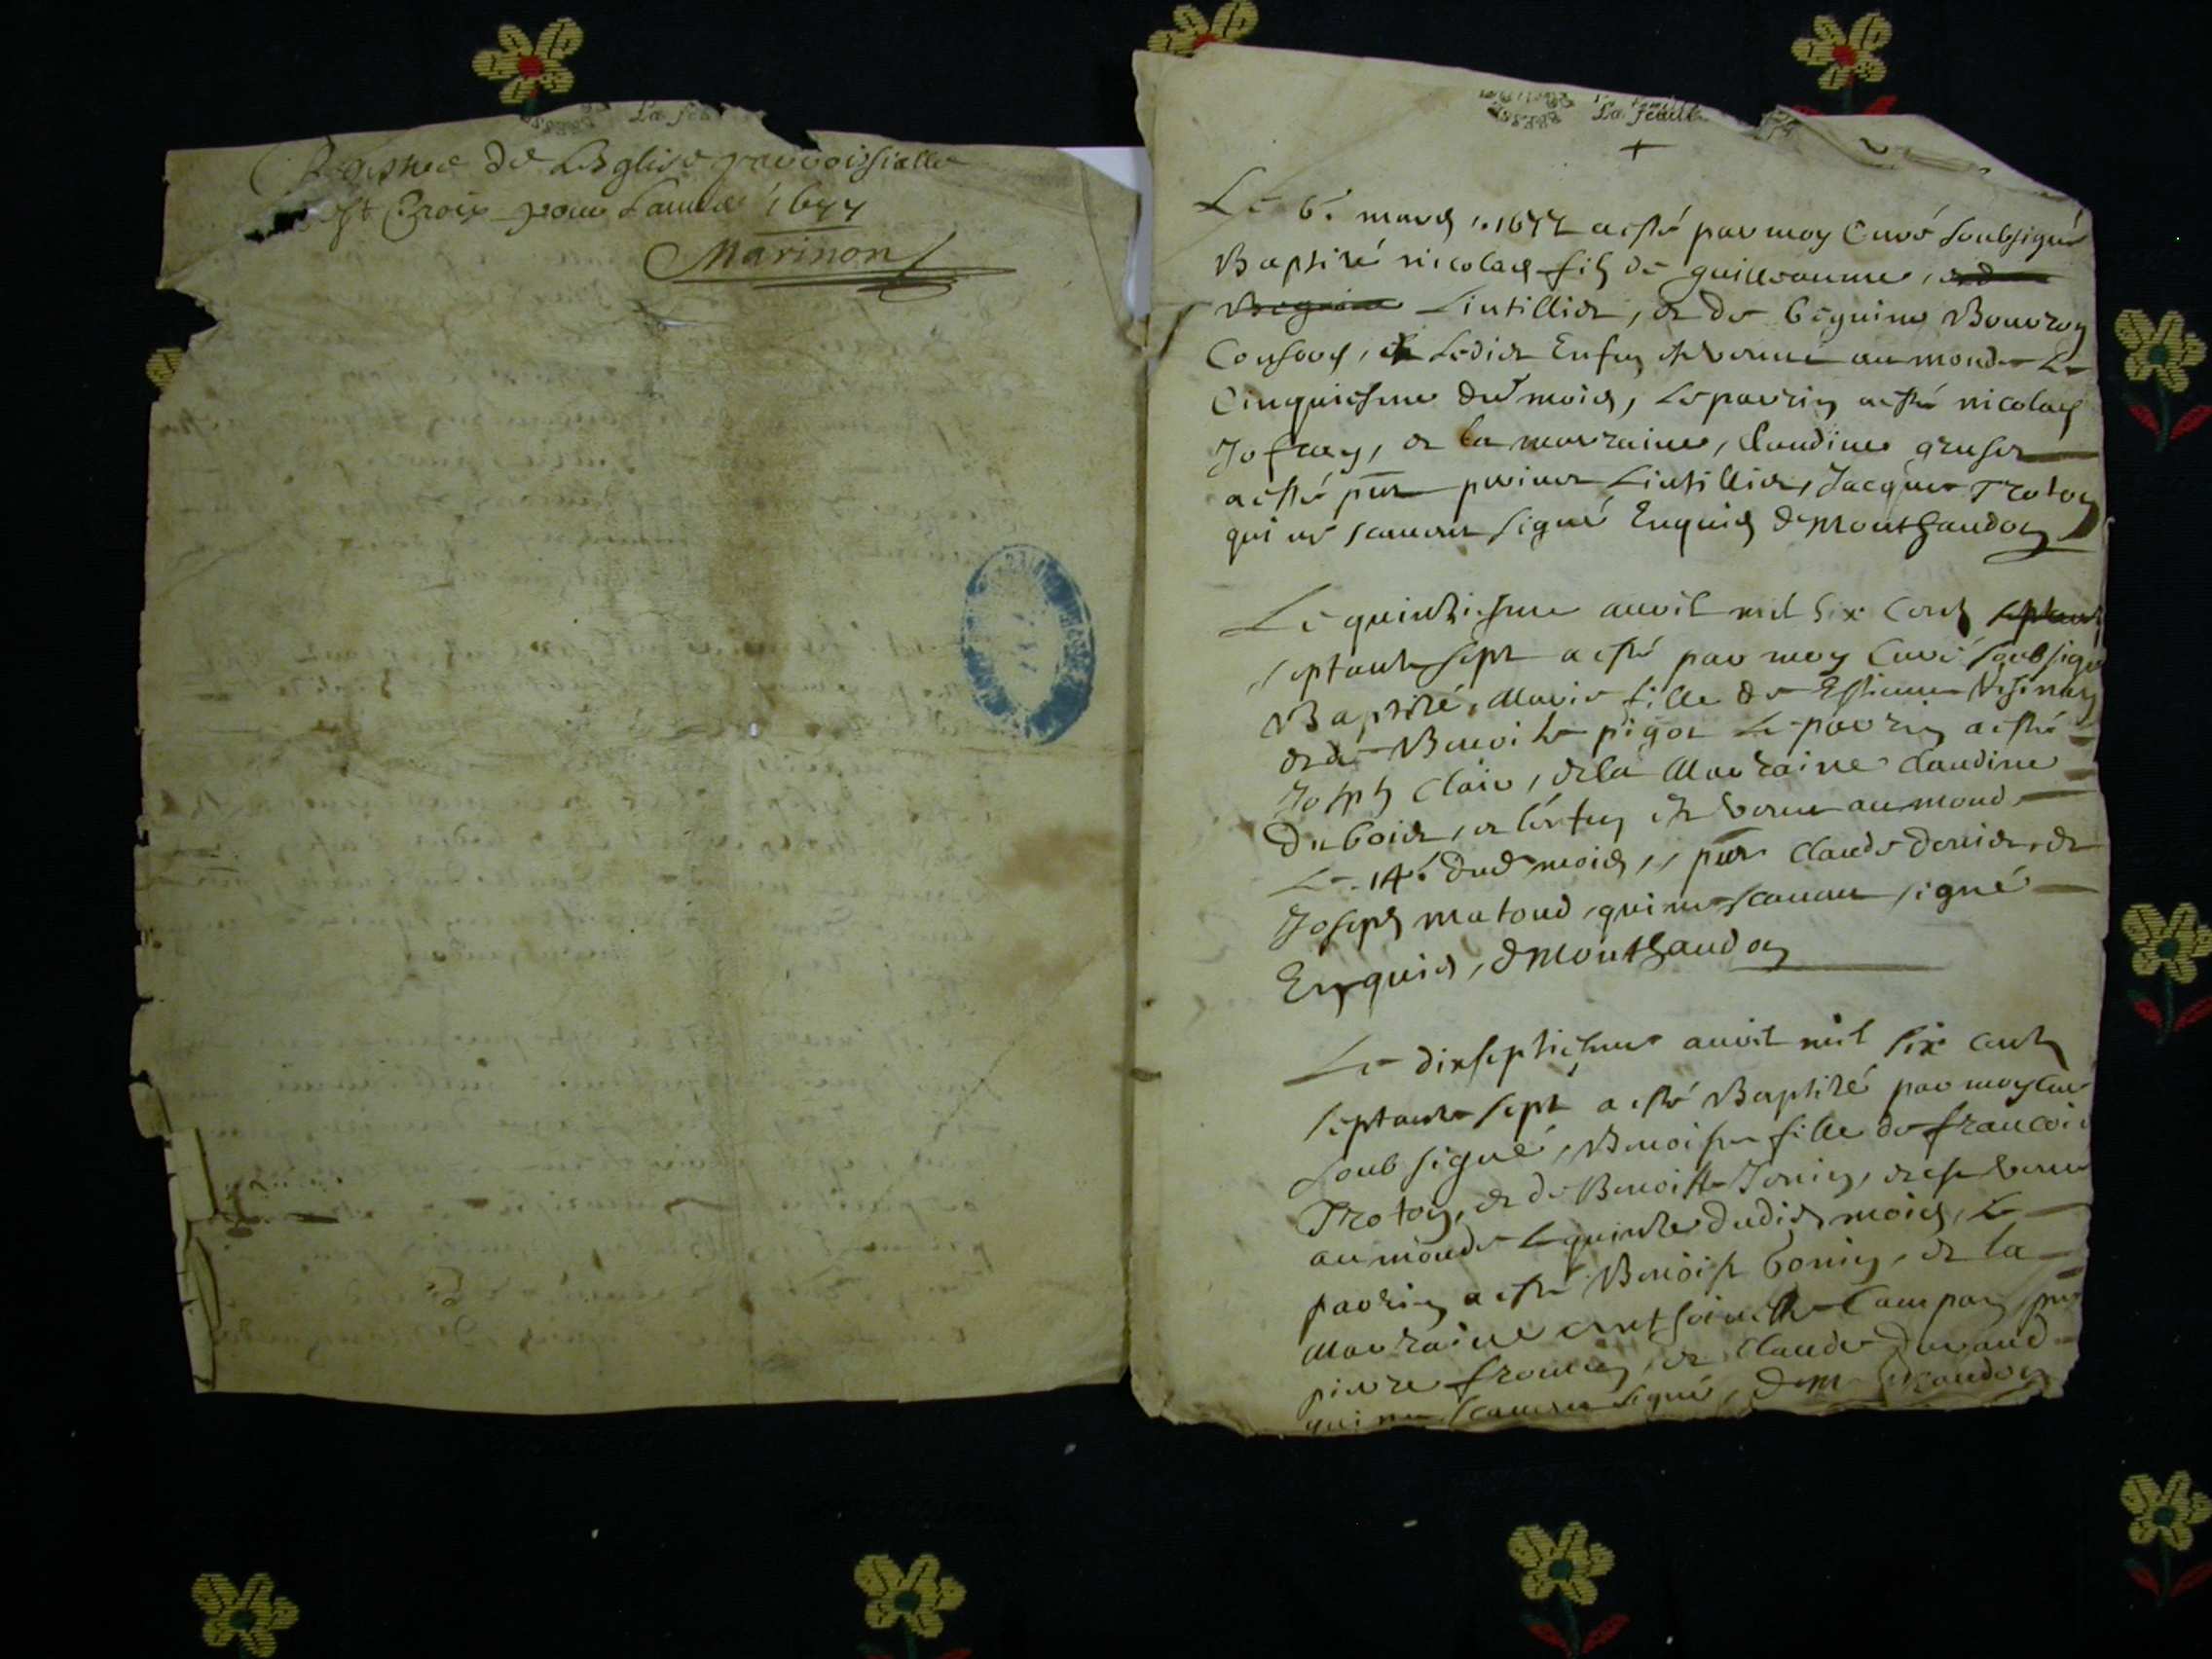 La feu
Registre de Lesglise parroissialle
Ste Croix pour Lannée 1677
Marinon
La feuill
Le 6e mars 1677 a esté par moy Curé soubsigné
Baptisé nicolas fils de guilleaume,
Lintillier, et de beguine Bourron
Consors, Ledict Enfan est venu au monde Le
Cinquiesme dud mois, Le parrin a esté nicolas
Jofray, et la marraine, Claudine
a esté pnt Lintillier, Jacques Troton
qui ne scauent signé Enquis DeMonthaudon
Le quinziesme auril mil six Cents
septante sept a esté par moy Curé soubsigné
Baptisé, Marie fille de Estienne
et de Benoite pigot Le parrin a esté
Joseph Clair, et la Marraine Claudine
Dubois, et lenfan est venu au monde
Le 14e dud mois, pnt Claude Denis, et
Joseph matoud, qui ne scauent signé
Enquis, DeMonthaudon
Le dixseptiesme auril mil six cents
septante sept a esté Baptisé par moy Curé
soubsigné, Benoiste fille de francois
Troton, et de Benoiste Jonin, et est venue
au monde Le quinze dudict mois, Le
parrin a esté Benoist bonin, et la
Marraine anthoinette
pierre et Claude Durand
qui ne scauent signé, DeMonthaudon